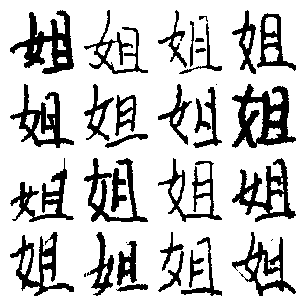 姐姐姐姐
姐姐姐姐
姐姐姐姐
姐姐姐姐